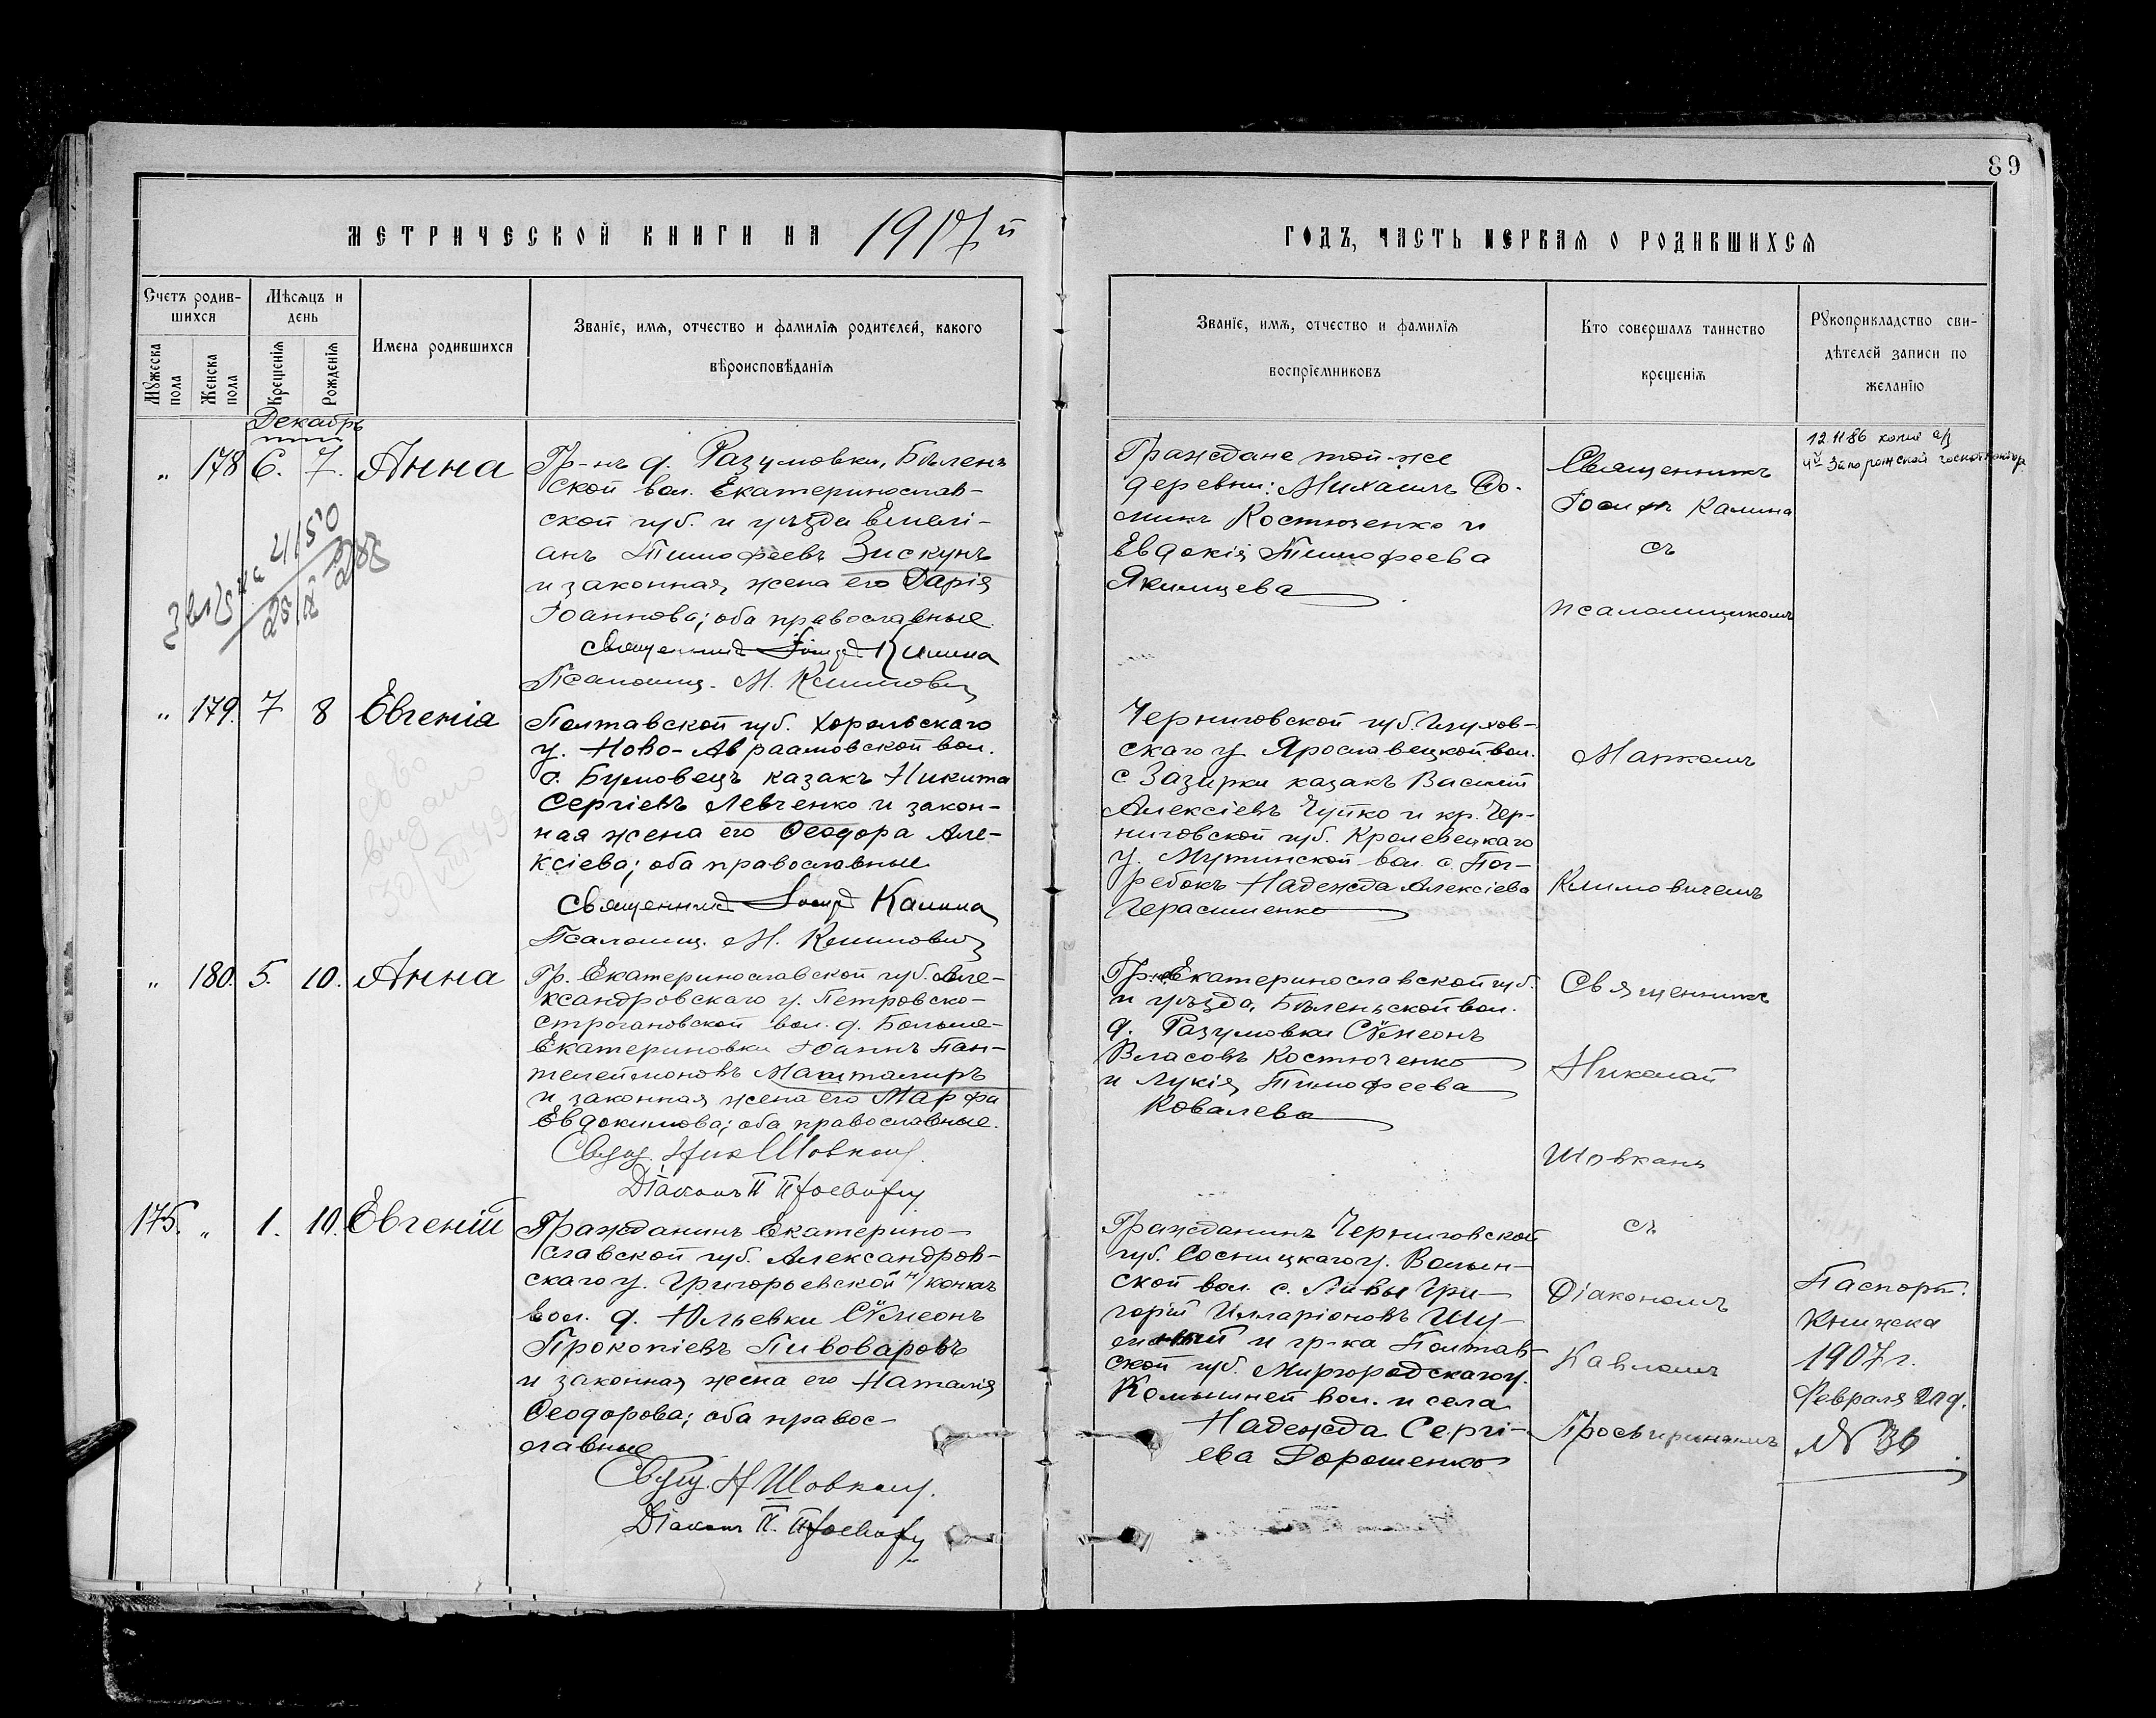 89
МЕТРИЧЕСКОЙ КНИГИ НА 1917й
ГОДЪ, ЧАСТЬ ПЕРВАЯ О РОДИВШИХСЯ
Счетъ родив-
шихся
Мужеска
пола
Женска
пола
Мѣсяцъ и
день
Крещенія
Рожденія
Имена родившихся
Званіе, имя, отчество и фамилія родителей, какого
вѣроисповѣданія
Званіе, имя, отчество и фамилія
воспріемниковъ
Кто совершалъ таинство
крещенія
Рукоприкладство сви-
дѣтелей записи по
желанію
Декабрь
„ 178 6. 7. Анна
Гр-нъ д. Разумовки, Бѣлень
ской вол. Екатеринослав-
ской губ. и уѣзда Емелі-
анъ Тимофеевъ Зискунъ
и законная жена его Дарія
Іоаннова; оба православные
Священникъ Калина
Псаломщ. М. Климович
Граждане той-же
деревни: Михаилъ Ѳо-
минъ Костюченко и
Евдокія Тимофеева
Якимцева
Священникъ
Калина
съ
псаломщикомъ
12.11 86 копия
Запорожской
„ 179. 7 8 Евгенія
выдано
30/VIII-49
Полтавской губ. Хорольскаго
у. Ново-Авраамовской вол.
казакъ Никита
Сергіевъ Левченко и закон-
ная жена его Ѳеодора Але-
ксіева; оба православные
Священникъ Калина
Псаломщ. М. Климович
Черниговской губ. Глухов-
скаго у. Ярославецкой вол.
с Зазирки казакъ Василій
Алексіевъ Чуйко и кр. Чер-
ниговской губ. Кролевецкаго
у. Мутинской вол. с. Пог-
ребокъ Надежда Алексіева
Герасименко
Климовичемъ
„ 180. 5. 10. Анна
Гр. Екатеринославской губ. Але-
ксандровскаго у. Петровско-
строгановской вол. д. Больше-
Екатериновки Іоаннъ Пан-
телеймоновъ Машталиръ
и законная жена его Марфа
Евдокимова; оба православные.
Свящ. Ник Шовкань
Діаконъ П
Гр-не Екатеринославской губ.
и уѣзда, Бѣленьской вол.
д. Разумовки Сѷмеонъ
Власовъ Костюченко
и Лукія Тимофеева
Ковалева
Священникъ
Николай
Шовкань
175. „ 1. 10. Евгеній
Гражданинъ Екатерино-
славской губ. Александров-
скаго у. Григорьевской н/конкъ
вол. д. Юльевки Сѷмеонъ
Прокопіевъ Пивоваровъ
и законная жена его Наталія
Ѳеодорова; оба правос-
лавные
Свящ. Н Шовкань.
Діаконъ П.
Гражданинъ Черниговской
губ. Сосницкаго у. Волын-
ской вол. с. Гри-
горій Илларіоновъ
и гр-ка Полтав-
ской губ. Миргородскаго у.
Комышней вол. и села
Надежда Сергі-
ева Дорошенко
съ
Діакономъ
Павломъ
Паспорт.
Книжка
1907 г.
Февраля